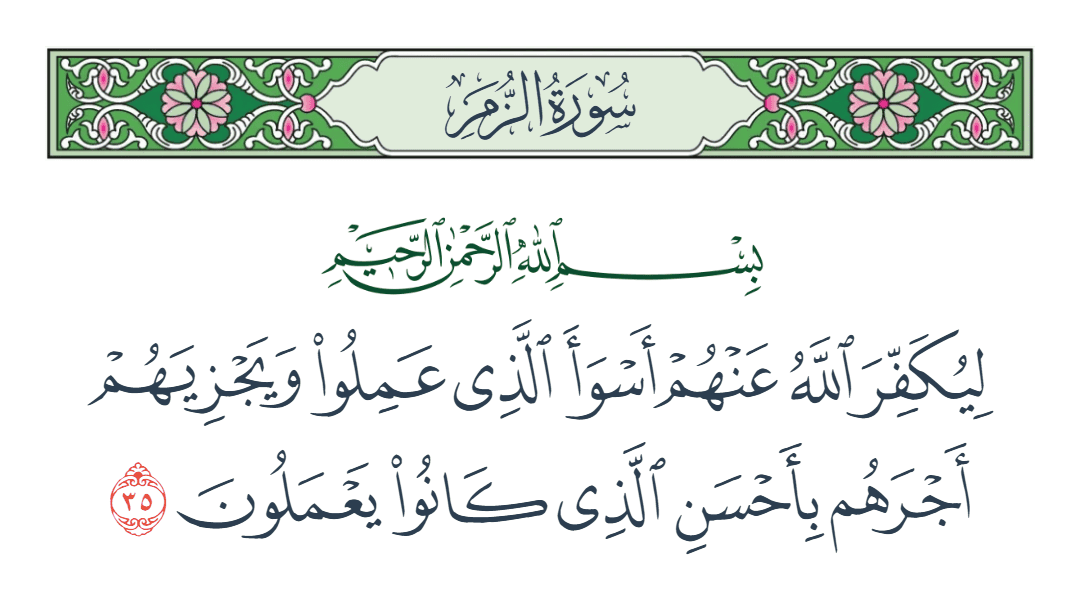 سُورَةُ الزُّمَرِ
بِسْمِ ٱللَّهِ ٱلرَّحْمَٰنِ ٱلرَّحِيمِ
لِيُكَفِّرَ ٱللَّهُ عَنْهُمْ أَسْوَأَ ٱلَّذِى عَمِلُوا۟ وَيَجْزِيَهُمْ
أَجْرَهُم بِأَحْسَنِ ٱلَّذِى كَانُوا۟ يَعْمَلُونَ ٣٥